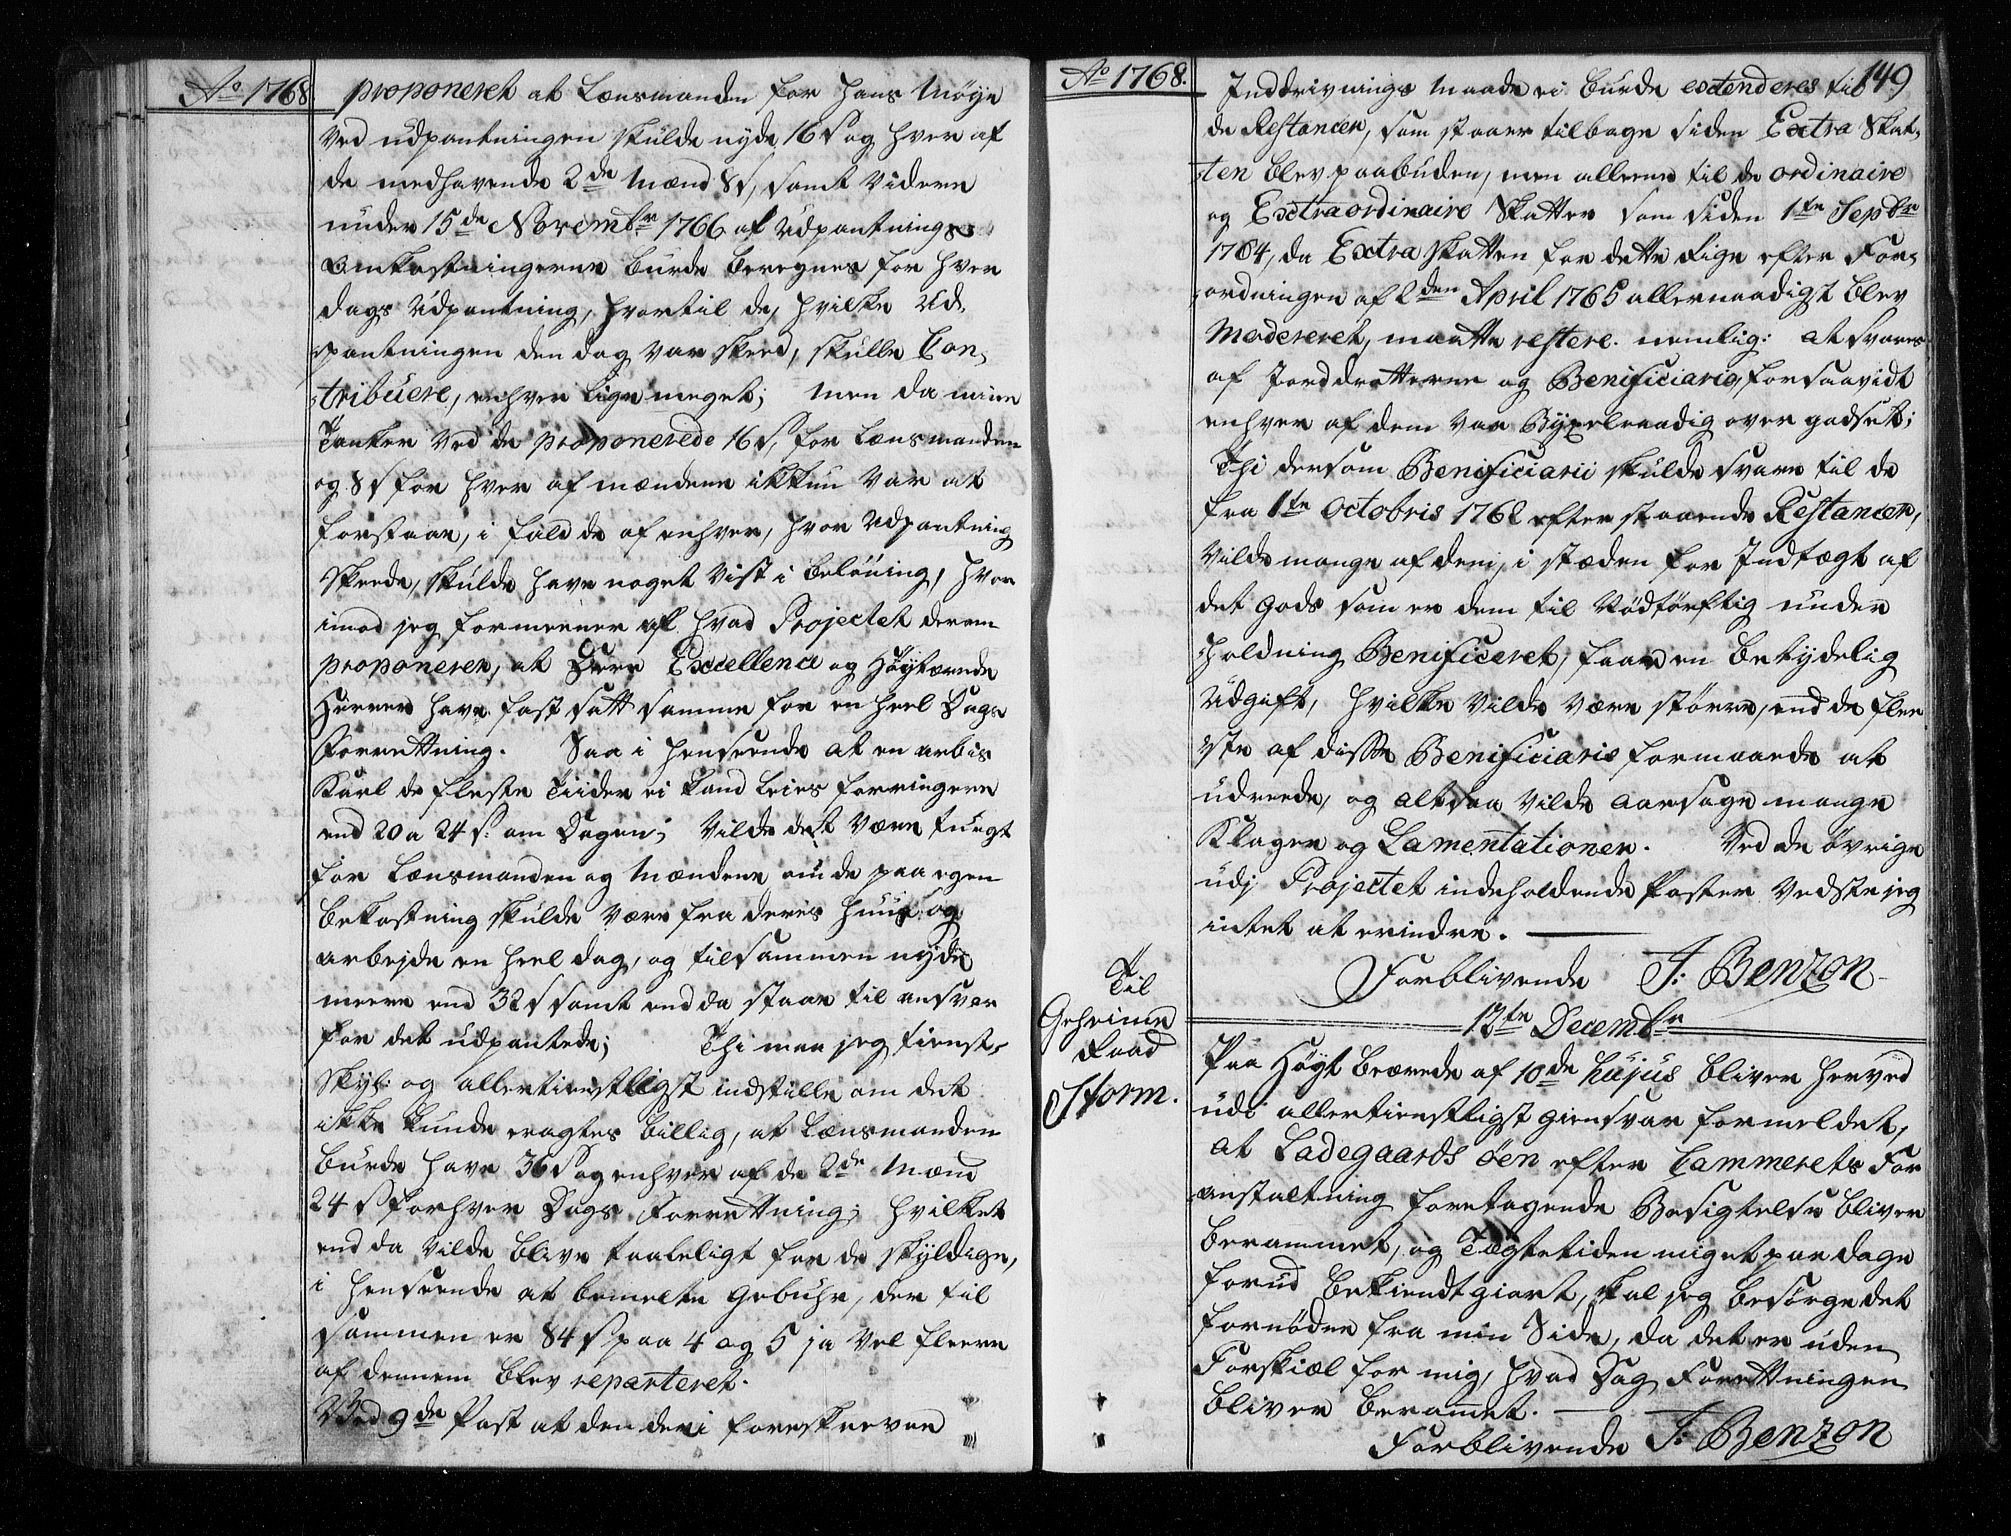 Ao 1768
proponeret at Lænsmanden for hans Møye
ved udpantningen skulde nyde 16 s og hver af
de medhavende 2de Mænd 8 s, samt videre
under 15de Novembr 1766 at Udpantnings
Omkostningerne burde beregnes for hver
dags Udpantning, hvortil de, hvilke Ud-
pantningen den dag var skeed, skulle Con-
tribuere, enhver lige meget; men da mine
Tanker ved de proponerede 16 s, for Lænsmanden
og 8 s for hver af mændene ikkun var at
forstaae, i fald de af enhver, hvor Udpantning
skeede, skulde have noget vist i belöning, hvor
imod jeg formeener af hvad Projectet derom
proponerer, at Deres Excellence og Høytærede
Herrer have fastsatt samme for en heel Dags
Forrettning. Saa i henseende at en arbis
Karl de fleste Tiider ei kand leies forringere
end 20 a 24 s: om Dagen; vilde det være tungt
for Lænsmanden og Mændene, om de paa egen
bekostning skulde være fra deris huus og
arbejde en heel dag, og tilsammen nyde
meere end 32 s samt end da staae til ansvar
for det udpantede; Thi maa jeg tienst-
skyl: og allertienstligst indstille om det
ikke kunde eragtes billig, at Lænsmanden
burde have 36 s og enhver af de 2de Mænd
24 s for hver Dags Forrettning; hvilket
end da vilde blive taaleligt for de skyldige,
i henseende at bemelte Gebuhr, der til
sammen er 84 s paa 4 og 5 ja vel fleere
af dennem blev reparteret.
Ved 9de Post at den deri foreskrevne
Ao 1768.
149
Inddrivnings Maade ei burde extenderes til
de Restancer, som staaer tilbage siden Extra Skat-
ten blev paabuden, men alleene til de ordinaire
og Extraordinaire Skatter som siden 1te Sepbr
1764, da Extra Skatten for dette Rige efter For-
ordningen af 2den April 1765 allernaadigst blev
Modereret, maatte restere. nemlig: at svares
af Jorddrotterne og Benificiarie, forsaavidt
enhver af dem var Byxelraadig over godset;
Thi dersom Benificiarii skulde svare til de
fra 1te Octobris 1762 efterstaaende Restancer,
vilde mange af dem, i stæden for Indtægt af
det Gods som er dem til Nødtørftig under
holdning Benificeret, faae en betydelig
Udgift, hvilke vilde være større, end de flee
ste af disse Benificiarie formaaede at
udreede, og altsaa vilde aarsage mange
Klager og Lamentationer. Ved de øvrige
udj Projectet indeholdende Poster vedste jeg
intet at erindre.
Forblivende J: Benzon
12te Decembr
Til
Geheime
Raad
Storm.
Paa Høyt beærede af 10de hujus bliver herved
udi allertienstligst giensvar formeldet,
at Ladegaards Øen efter Cammerets For
anstaltning foretagende Besigtelse bliver
berammet, og Tægtetiden mig et par dage
forud bekiendtgiort, skal jeg besörge det
fornødne fra min Side, da det er uden
Forskiæl for mig, hvad Dag Forrettningen
bliver berammet.
Forblivende J: Benzon